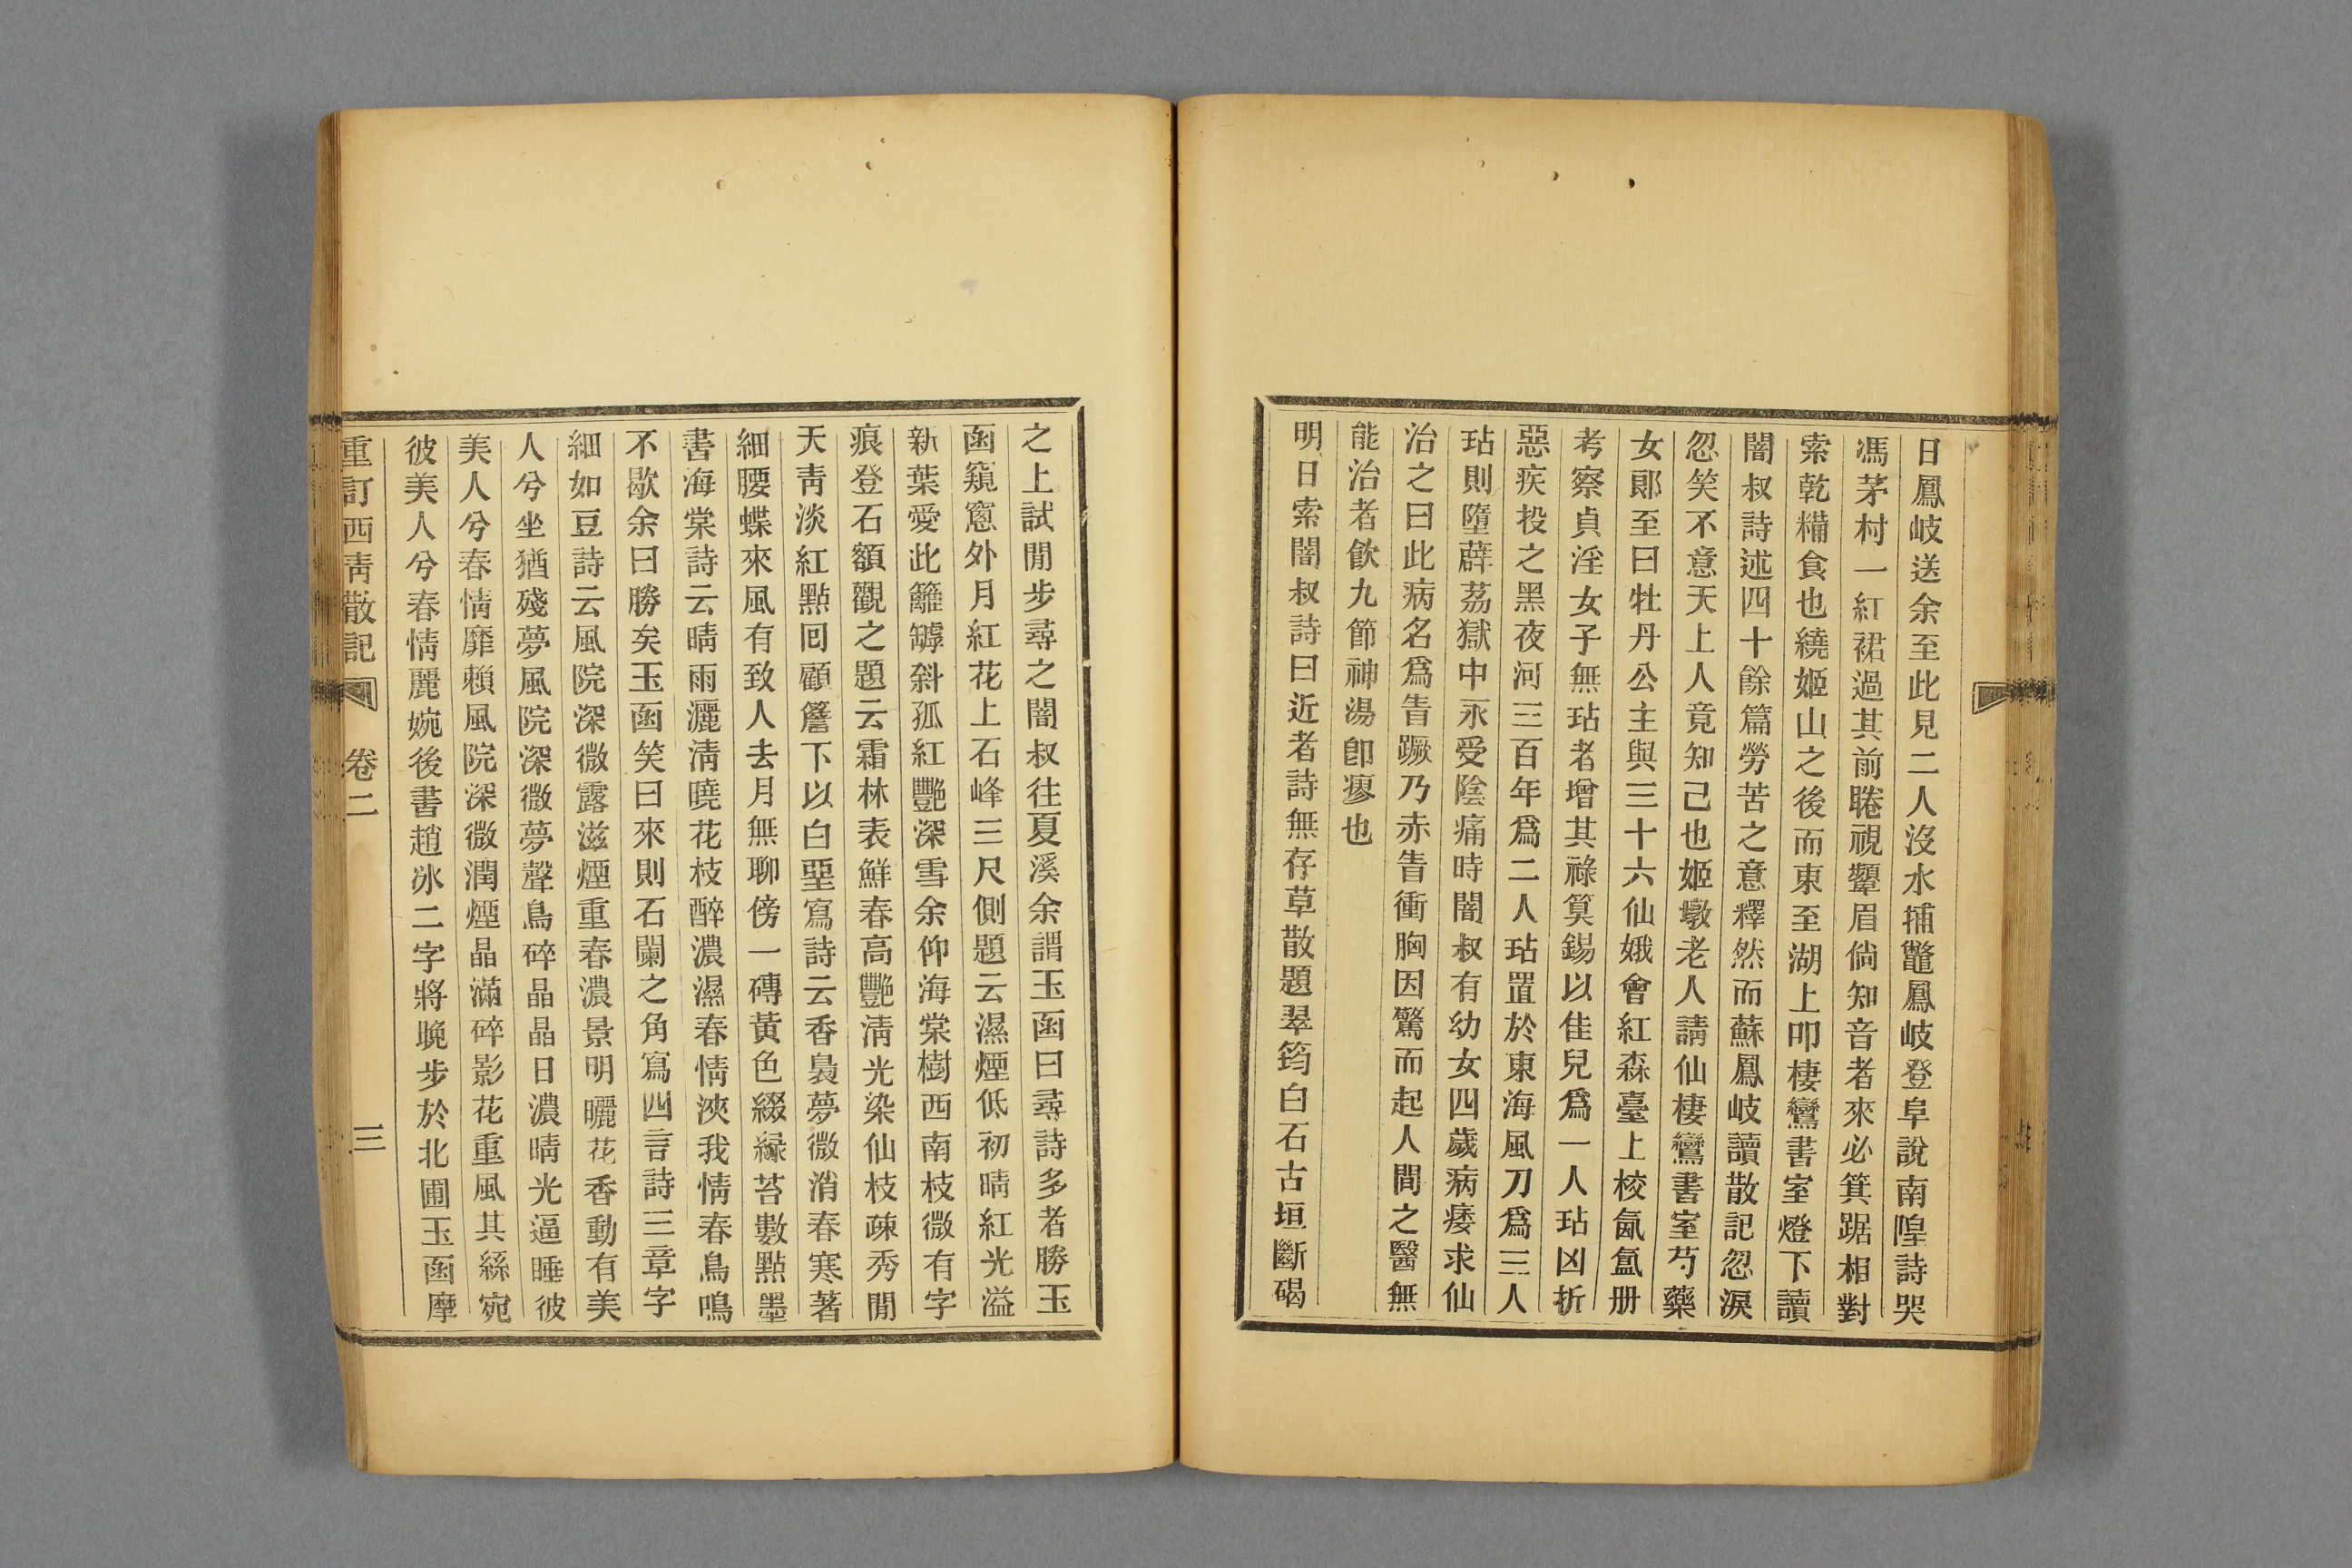 日鳳岐送余至此見二人沒水捕鼈鳳岐登阜說南隍詩哭
馮茅村一紅裙過其前睠視顰眉倘知音者來必箕踞相對
索乾糒食也繞姬山之後而東至湖上叩棲鸞書室燈下讀
闇叔詩述四十餘篇勞苦之意釋然而蘇鳳岐讀散記忽淚
忽笑不意天上人竟知己也姬墩老人請仙棲鸞書室芍藥
女郞至曰牡丹公主與三十六仙娥會紅森臺上校氤氳册
考察貞淫女子無玷者增其祿算錫以佳兒爲一人玷凶折
惡疾投之黑夜河三百年爲二人玷置於東海風刀爲三人
玷則墮薜荔獄中永受陰痛時闇叔有幼女四歲病痿求仙
治之曰此病名爲眚蹶乃赤眚衝胸因驚而起人間之醫無
能治者飮九節神湯卽瘳也
明日索闇叔詩曰近者詩無存草散題翠筠白石古垣斷碣
之上試閒步尋之闇叔往夏溪余謂玉函曰尋詩多者勝玉
函窺窻外月紅花上石峰三尺側題云濕煙低初晴紅光溢
新葉愛此籬罅斜孤紅艷深雪余仰海棠樹西南枝微有字
痕登石額觀之題云霜林表鮮春高艷淸光染仙枝疎秀閒
天靑淡紅點回顧簷下以白堊寫詩云香裊夢微消春寒著
細腰蝶來風有致人去月無聊傍一磚黃色綴綠苔數點墨
書海棠詩云晴雨灑淸曉花枝醉濃濕春情浹我情春鳥鳴
不歇余曰勝矣玉函笑曰來則石闌之角寫四言詩三章字
細如豆詩云風院深微露滋煙重春濃景明曬花香動有美
人兮坐猶殘夢風院深微夢聲鳥碎晶晶日濃晴光逼睡彼
美人兮春情靡賴風院深微潤煙晶滿碎影花重風其絲宛
彼美人兮春情麗婉後書趙冰二字將晚步於北圃玉函摩
重訂西靑散記 卷二 三